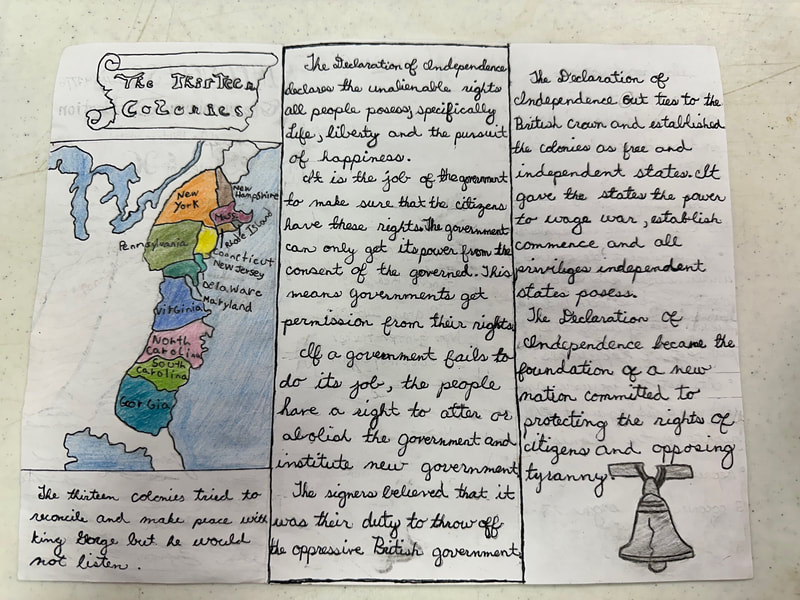 The Thirteen
Colonies
New
York
New
Hampshire
Mass
Rhode Island
Pennsylvania
Conneticut
New Jersey
Delaware
Maryland
Virginia
North
Carolina
South
Carolina
Georgia
The thirteen colonies tried to
reconcile and make peace with
King George but he would
not listen.
The Declaration of Independence
declares the unalienable rights
all people posess, specifically
life, liberty and the pursuit
of happiness.
It is the job of the government
to make sure that the citizens
have these rights. The government
can only get its power from the
consent of the governed. This
means governments get
permission from their rights.
If a government fails to
do its job, the people
have a right to alter or
abolish the government and
institute new government.
The signers believed that it
was their duty to throw off
the oppressive British government.
The Declaration of
Independence cut ties to the
British Crown and established
the colonies as free and
independent states. It
gave the states the power
to wage war, establish
commence and all
priviliges independent
states posess.
The Declaration of
Independence became the
foundation of a new
nation committed to
protecting the rights of
citizens and opposing
tyranny.